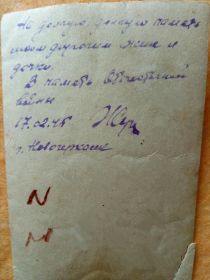 На долгую, долгую память
моим дорогим жене и
дочки.
В память Отечественной
войны
17.02.45
г. Новочеркасск
N
N